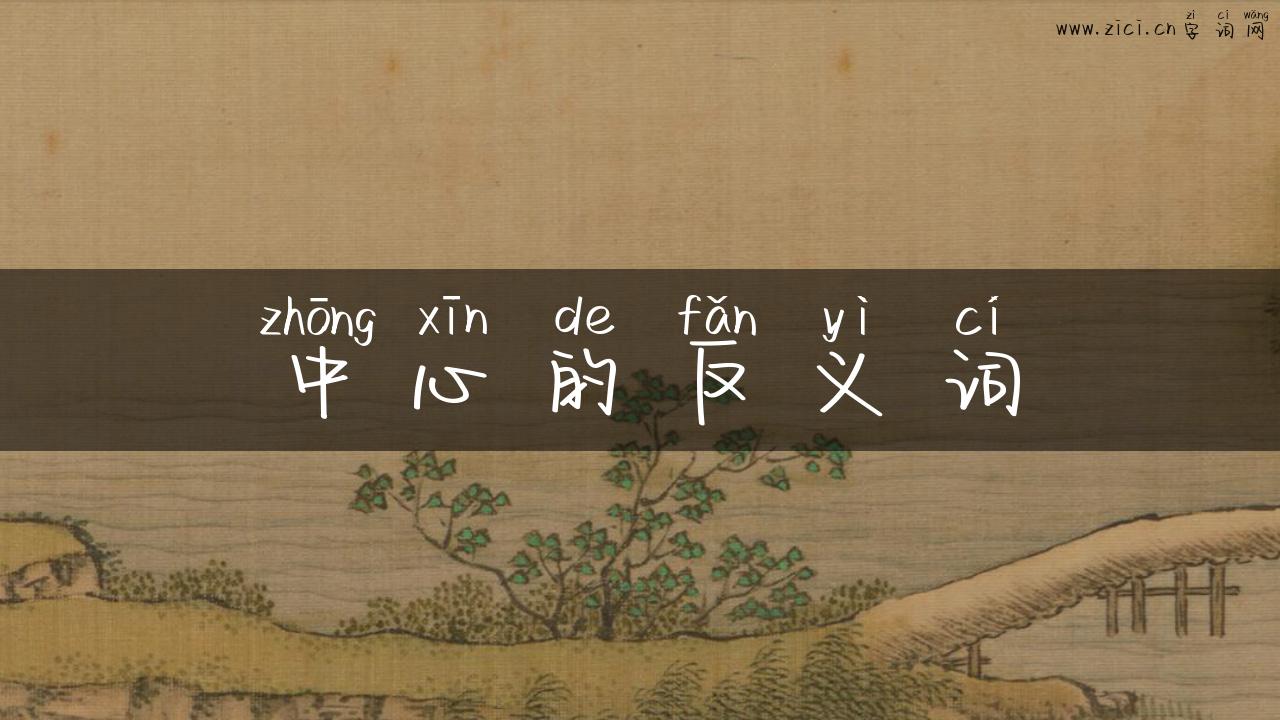 www.zici.cn zì cí wǎng
字词网
zhōng xīn de fǎn yì cí
中心的反义词